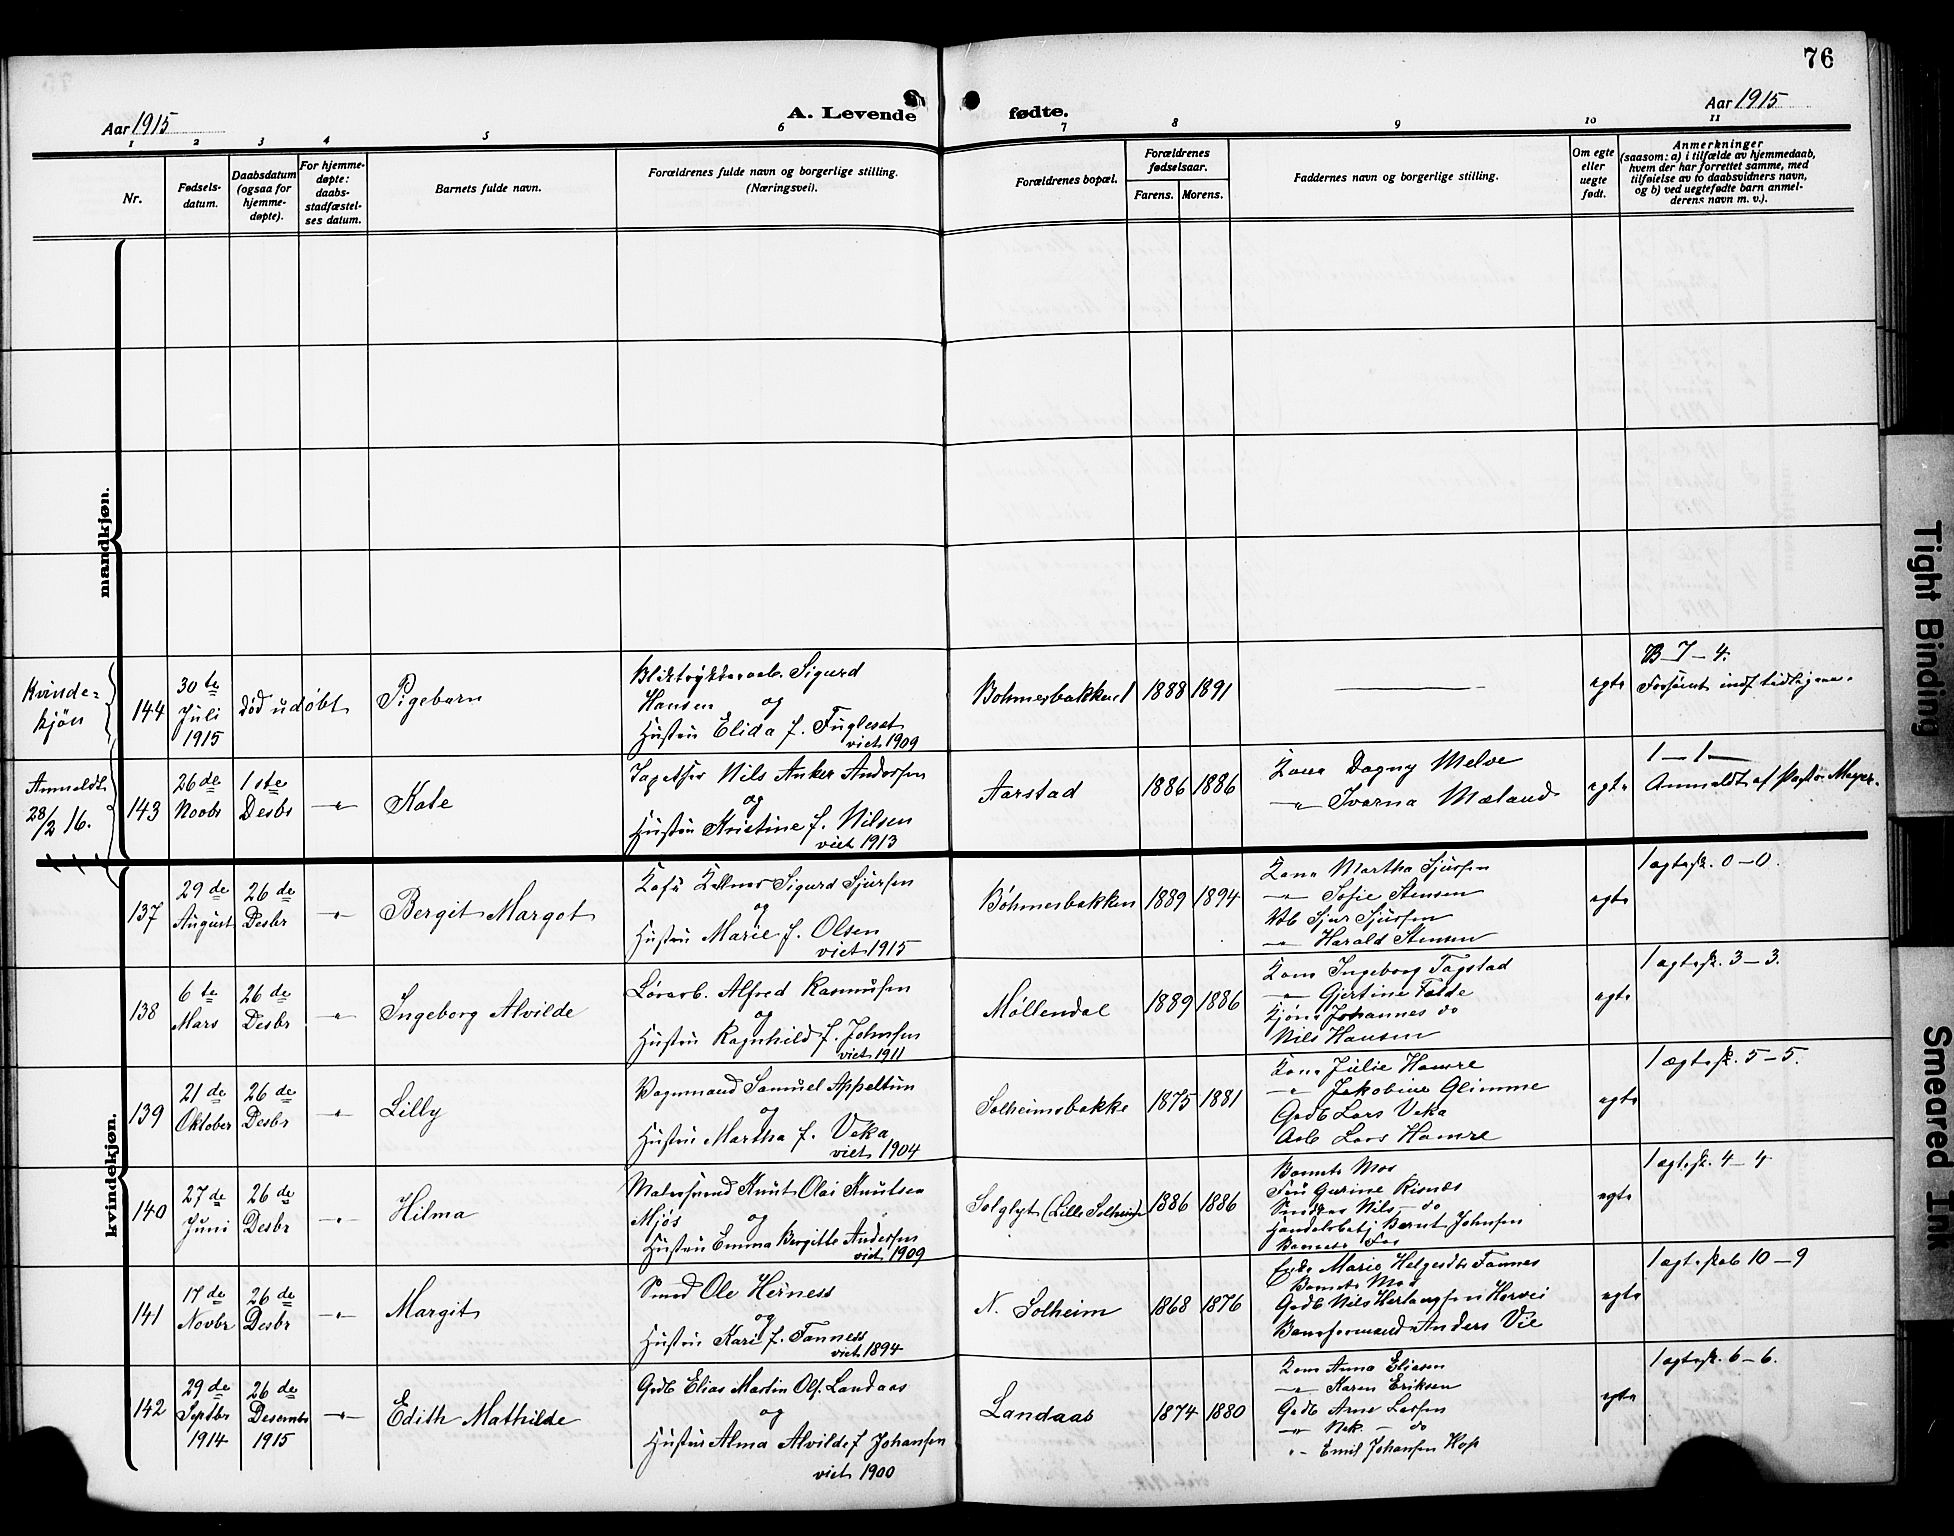 76
Aar 1915
A. Levende
fødte.
Aar 1915
1 2 3 4 5 6 7 8 9 10 11
Nr.
Fødsels-
datum.
Daabsdatum
(ogsaa for
hjemme-
døpte).
For hjemme-
døpte:
daabs-
stadfæstel-
ses datum.
Barnets fulde navn.
Forældrenes fulde navn og borgerlige stilling.
(Næringsvei).
Forældrenes bopæl.
Forældrenes
fødselsaar.
Farens. Morens.
Faddernes navn og borgerlige stilling.
Om egte
eller
uegte
født.
Anmerkninger
(saasom: a) i tilfælde av hjemmedaab,
hvem der har forrettet samme, med
tilføielse av to daabsvidners navn,
og b) ved uegtefødte barn anmel-
derens navn m. v.).
mandkjøn.
Kvinde-
kjøn
144
30te
Juli
1915
død udøbt
Pigebarn
Sigurd
Hansen og
Hustru Elida f. Fugleset
viet 1909
Bohmerbakken 1
1888 1891
egte
B-7-4.
Anmeldt
28/2 16.
143
26de
Novbr
1ste
Desbr
Kate
Nils Anker Andersen
og
Hustru Kristine f. Nilsen
viet 1913
Aarstad
1886 1886
Kone Dagny Melve
-"- Mæland
egte
1-1-
Anmeldt af Pastor Meyer.
kvindekjøn.
137
29de
August
26de
Desbr
-"-
Bergit Margot
Sigurd Sjursen
og
Hustru Marie f. Olsen
viet 1915
Böhmerbakken
1889 1894
Kone Martha Sjursen
-"- Sofie Stensen
Sjur Sjursen
-"- Harald Stensen
egte
1 ægtesk. 0-0.
138
6te
Mars
26de
Desbr
-"-
Ingeborg Alvilde
Alfred Rasmusen
og
Hustru Ragnhild f. Johnsen
viet 1911
Möllendal
1889 1886
Kone Ingeborg Fagstad
-"- Gjertine Folde
Johannes do
Nils Hansen
egte
1 ægtesk. 3-3.
139
21de
Oktober
26de
Desbr
-"-
Lilly
Vognmand Samuel Appeltun
og
Hustru Martha f. Veka
viet 1904
Solheimsbakke
1875 1881
Kone Julie Hamre
-"- Jakobine Glimme
Gdb Lars Veka
Arb Lars Hamre
egte
1 ægtesk. 5-5.
140
27de
Juni
26de
Desbr
-"-
Hilma
Knut Olai Knutsen
Mjös og
Hustru Emma Bergitte Andersen
viet 1909
Solglyt (Lille Solheim)
1886 1886
Barnets Mor
Fru Gurine Risnæs
Nils do
Handelsbetj Bernt Johnsen
Barnets Far
egte
1 ægtesk. 4-4
141
17de
Novbr
26de
Desbr
-"-
Margit
Smed Ole Herness
og
Hustru Kari f. Fonness
viet 1894
N. Solheim
1868 1876
Marie Fonnes
Barnets Mor
Gdb Nils
Anders Vie
egte
1 ægteskab 10-9
142
29de
Septbr
1914
26de
Desembr
1915
-"-
Edith Mathilde
Gdb Elias Martin Ols. Landaas
og
Hustru Alma Alvilde f Johansen
viet 1900
Landaas
1874 1880
Kone Anna Eliasen
-"- Karen Eriksen
Gdb Arne Larsen
-"- do
-"- Emil Johansen Hop
egte
1 ægtesk. 6-6.
Tight Binding
Smeared Ink